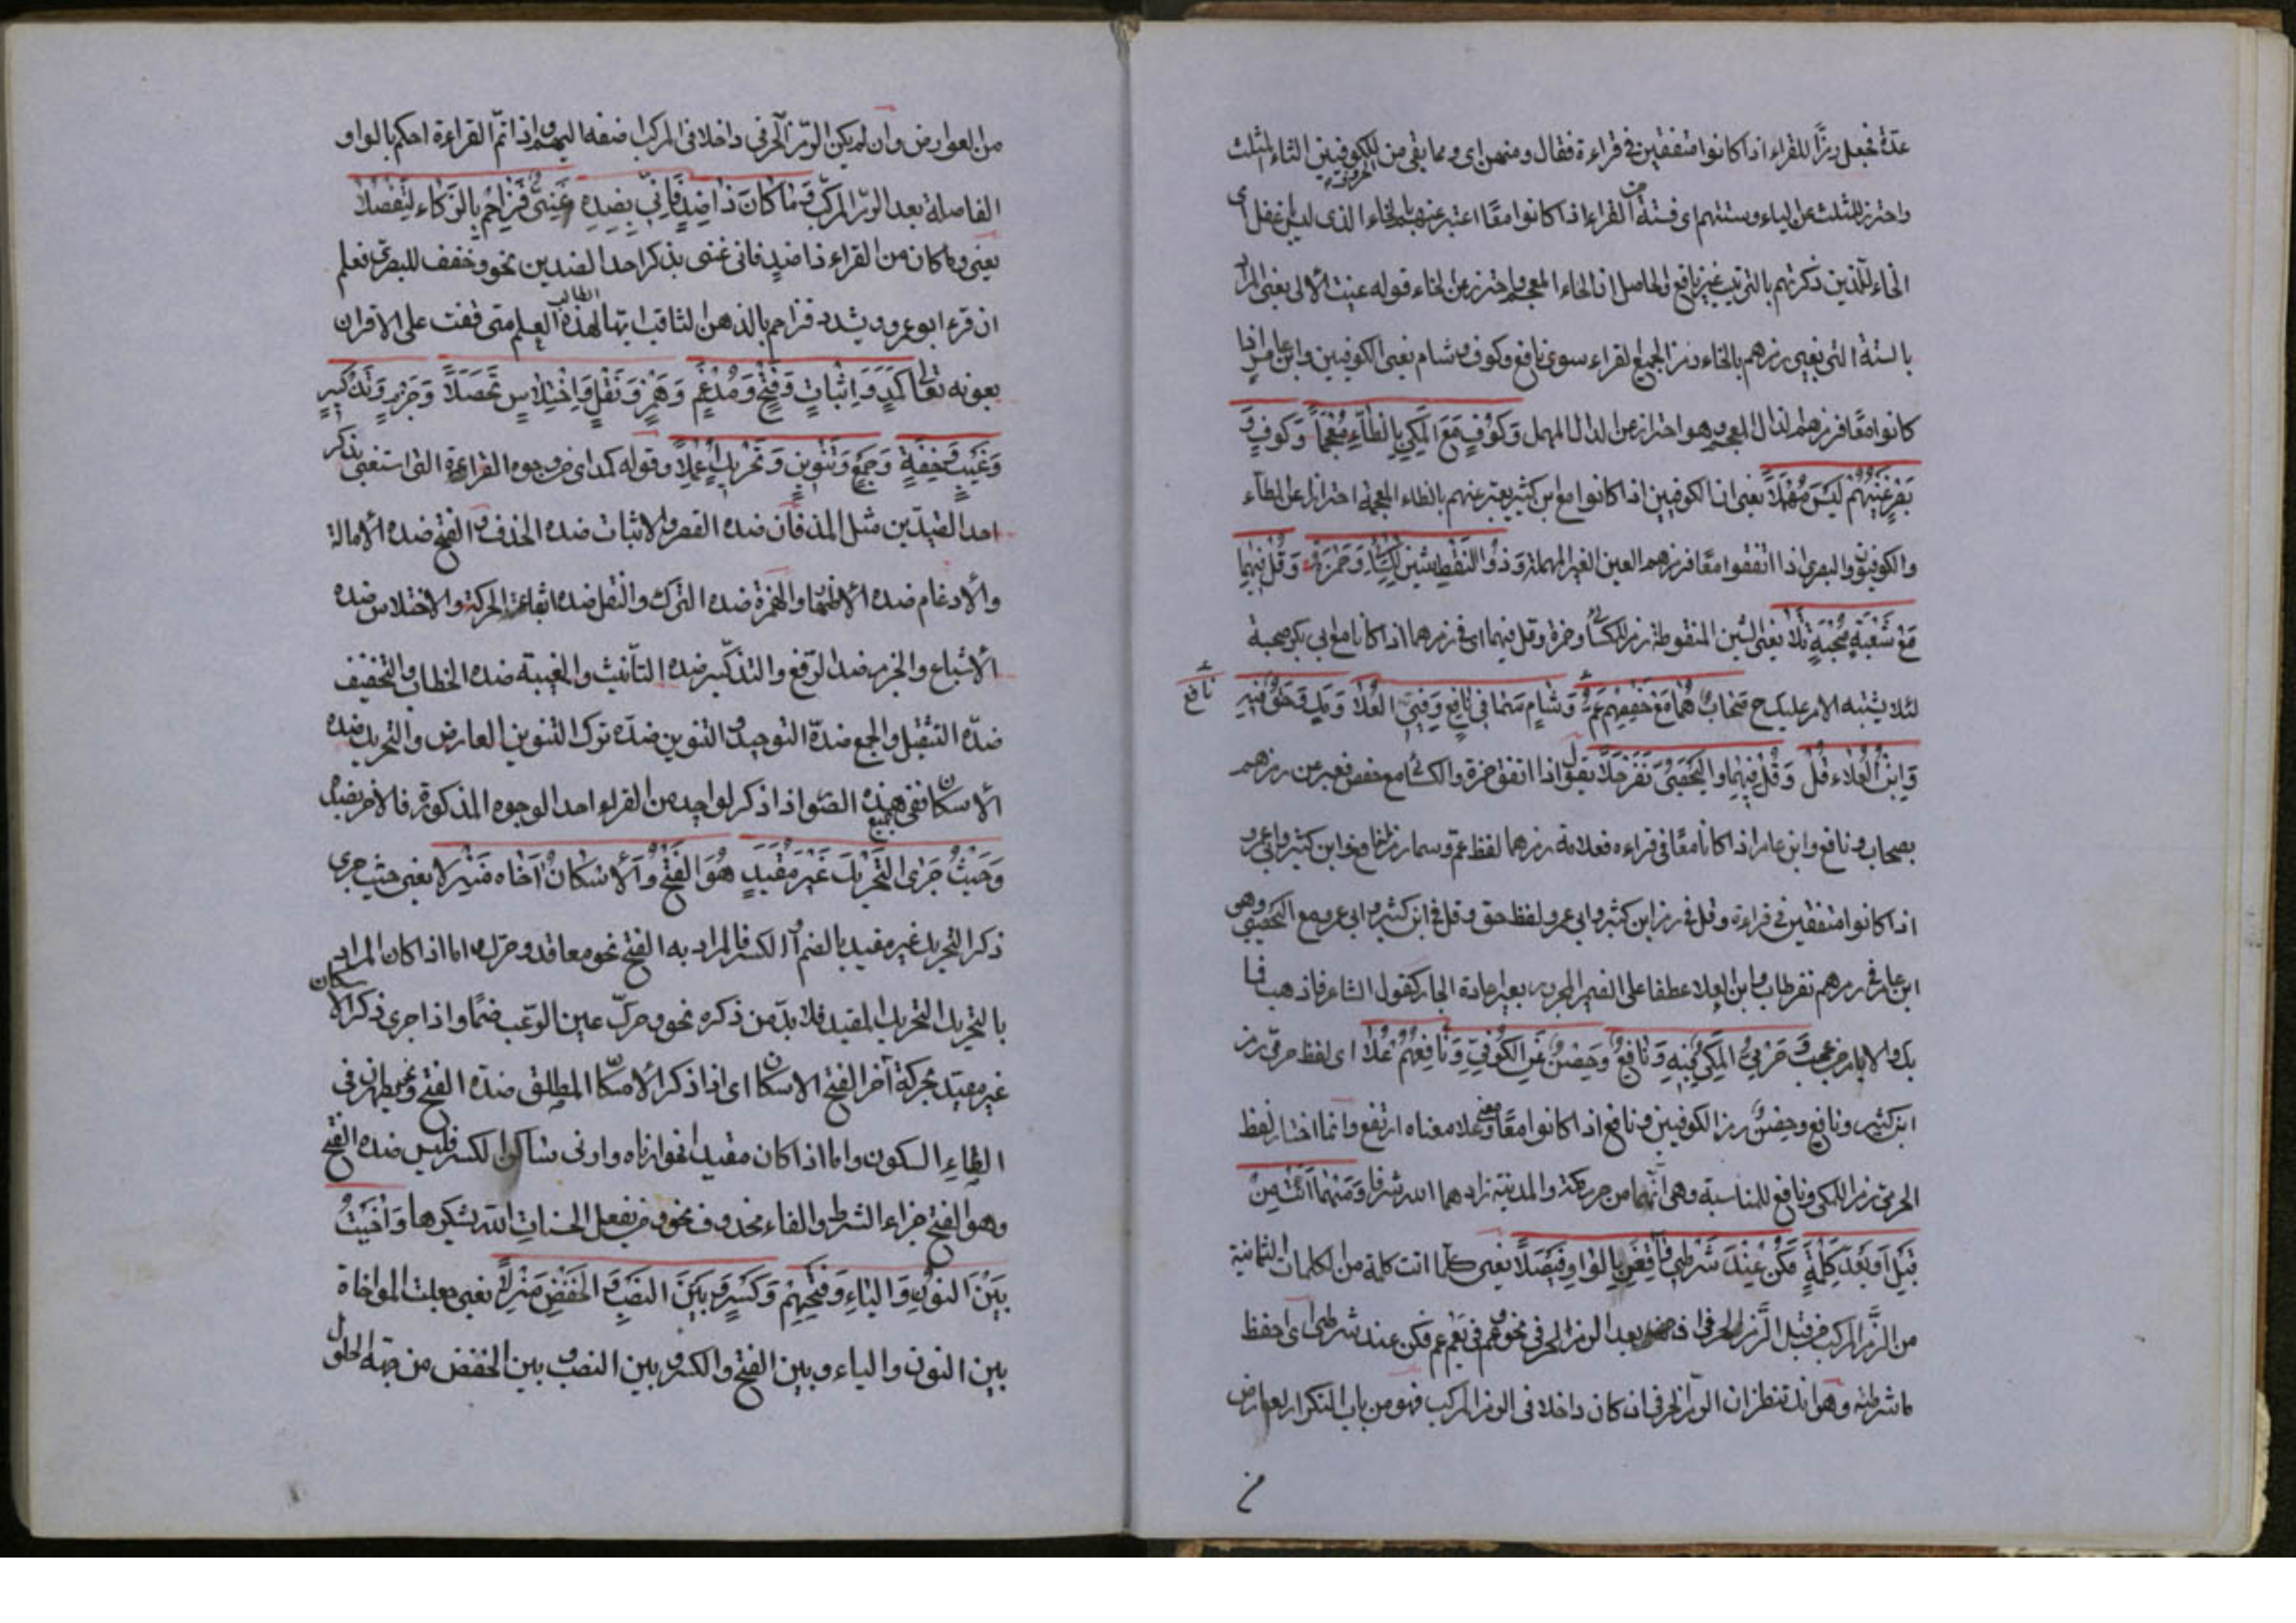 عدة فجعل رمزًا للقراء اذا كانوا متفقين فى قراءة فقال ومنهن اى ومما بقى من للكوفيين الثاء المثلث
واحترز بالمثلث عن الياء وستتهم اى ستة القراء اذا كانوا معًا اعتبر عنهم بالخاء الذى ليس غفل اى
الخاء للذين ذكرتهم بالترتيب غير نافع والحاصل ان الخاء المعجم واحترز عن الحاء قوله عنيت الالى يعنى المراد
بالستة التى يعنى رمزهم بالخاء رمز الجميع القراء سوى نافع وكوف وشام يعنى الكوفيين وابن عامر اذا
كانوا معًا فرمزهم الذال المعجم وهو احتراز عن الدال المهمل وَكُوفٍ مَعَ المَكِّيِ بِالظَّآءِ مُعْجَمًا وَكُوفٍ وَ
بَصْرٍ غَيْنُهُمْ لَيْسَ مُهْمَلَا يعنى ان الكوفيين اذا كانوا مع ابن كثير يعتبر عنهم بالظاء المعجمة احترازا عن الطآء
والكوفيون والبصرى اذا اتفقوا معًا فرمزهم العين الغير المهملة وَذُو النَّقْطِ شِينٌ لِلْكِسَائِى وَحَمْزَةٍ وَقُلْ فِيهِمَا
مَعْ شُعْبَةٍ صُحْبَةٌ تَلَا يعنى الشين المنقوطة رمز للكسائى وحمزة وقل فيهما اى فى رمزهما اذا كانا مع ابى بكر صحبة
لئلا يشتبه الامر عليك ح صَحَابٌ هُمَا مَعْ حَفْصِهِمْ عَمَّ وَشَامٍ سَمَا فِى نَافِعٍ وَفَتَى الْعَلَا وَمَكٍّ وَحَقٌّ فِيهِ
نافع
وَابْنُ الْعَلَاءِ قُلْ وَقُلْ فِيهِمَا وَالْيَحْصَبِى نَفَرٌ حَلَا يقول اذا اتفق حمزة والكسائى مع حفص فعبر عن رمزهم
بصحاب ونافع وابن عامر اذا كانا معًا فى قراءه فعلامة رمزهما لفظ عم وسما رمز لنافع وابن كثير وابى عمرو
اذا كانوا متفقين فى قراءة وقل فى رمز ابن كثير وابى عمرو لفظ حق وقل فى ابن كثير وابى عمرو مع اليحصبى وهو
ابن عامر فى رمزهم نفر وابن العلا عطفا على الضمير المجرور بغير اعادة الجار كقول الشاعر فاذهب فما
بك والايام من عجب وَحِرْمِيٌّ الْمَكِّيُّ فِيهِ وَنَافِعٌ وَحِصْنٌ عَنِ الْكُوفِى وَنَافِعِهِمْ عَلَا اى لفظ حرمى رمز
ابن كثير ونافع وحصن رمز الكوفيين ونافع اذا كانوا معًا ومعنى علا معناه ارتفع وانما اختار لفظ
الحرمى رمز المكى ونافع للمناسبة وهى انهما من حرم مكة والمدينة زادهما الله شرفا وَمَهْمَا أَتَتْ مِنْ
قَبْلُ أَوْ بَعْدُ كِلْمَةٌ فَكُنْ عِنْدَ شَرْطِى وَاقْضِ بِالْوَاوِ فَيْصَلَا يعنى كلما اتت كلمة من الكلمات الثمانية
من الرمز المركب من قبل الرمز الحرفى او بعد الرمز الحرفى نحو فكن عند شرطى اى احفظ
ما شرطته وهو ان تنظر ان الرمز الحرفى ان كان داخلا فى الرمز المركب فهو من باب التكرار لعارض
من العوارض وان لم يكن الرمز الحرفى داخلا فى المركب اضفه اليهم واذا تم القراءة احكم بالواو
الفاصلة بعد الرمز المركب وَمَا كَانَ ذَا ضِدٍّ فَإِنِّى بِضِدِّهِ غَنِىٌّ فَزَاحِمْ بِالذَّكَاءِ لِتَفْضُلَا
يعنى وما كان من القراء ذا ضد فانى غنى بذكر احد الضدين نحو وخفف للبصرى فعلم
ان قرء ابو عمرو يشدد فزاحم بالذهن الثاقب ايها الطالب لهذه العلم متى فقت على الاقران
بعونه تعالى كَمَدٍّ وَإِثْبَاتٍ وَفَتْحٍ وَمُدْغَمٍ وَهَمْزٍ وَنَقْلٍ وَاخْتِلَاسٍ تَحَصَّلَا وَجَزْمٍ وَتَذْكِيرٍ
وَغَيْبٍ وَخِفَّةٍ وَجَمْعٍ وَتَنْوِينٍ وَتَحْرِيكٍ اُعْمِلَا وقوله كمد اى من وجوه القراءة التى استغنى بذكر
احد الضدين مثل المد فان ضده القصر والاثبات ضده الحذف والفتح ضده الامالة
والادغام ضده الاظهار والهمزة ضده الترك والنقل ضده ابقاء الحركة والاختلاس ضده
الاشباع والجزم ضد الرفع والتذكير ضده التأنيث والغيبة ضده الخطاب والتخفيف
ضده التثقيل والجمع ضدّه التوحيد والتنوين ضدّه ترك التنوين العارض والتحريك ضده
الاسكان ففى جميع هذه الصور اذا ذكر لواحد من القراء احد الوجوه المذكورة فالاخر بضده
وَحَيْثُ جَرَى التَّحْرِيكُ غَيْرَ مُقَيَّدٍ هُوَ الْفَتْحُ وَالْإِسْكَانُ آخَاهُ مَنْزِلَا يعنى حيث جرى
ذكر التحريك غير مقيد بالضم او الكسر فالمراد به الفتح نحو معا قدر حرك اما اذا كان المراد
بالتحريك التحريك المقيد فلا بدّ من ذكره نحو وحرك عين الرعب ضمًا واذا جرى ذكر الاسكان
غير مقيد بحركة آخر الفتح الاسكان اى اذا ذكر الاسكان المطلق ضده الفتح نحو ويطهرن فى
الطاء السكون واما اذا كان مقيدا نحو ارنا وارنى ساكنا الكسر فليس ضده الفتح
وهو الفتح جزاء الشرط والفاء محذوف نحو من يفعل الحسنات الله يشكرها وَآخَيْتُ
بَيْنَ النُّونِ وَالْيَاءِ وَفَتْحِهِمْ وَكَسْرٍ وَبَيْنَ النَّصْبِ وَالْخَفْضِ مُنْزِلَا يعنى جعلت المواخاة
بين النون والياء وبين الفتح والكسر وبين النصب وبين الخفض من جهة الحلول